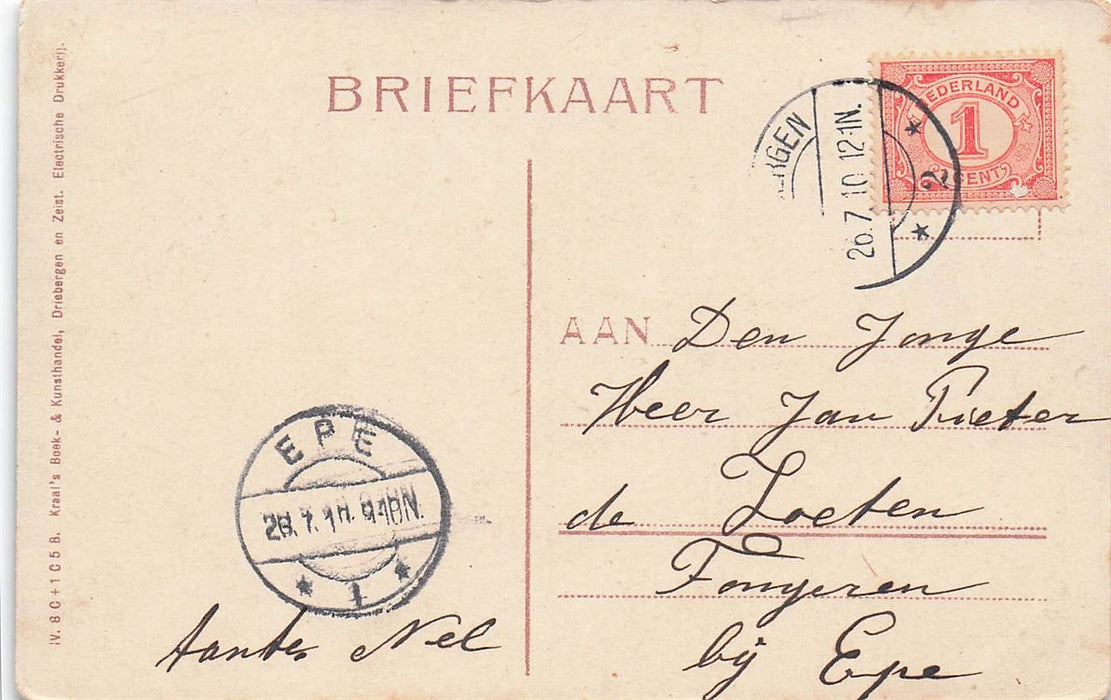 BRIEFKAART
NEDERLAND
1
CENT
26.7.10.12-1N.
2
AAN Den Jonge
Heer Jan Pieter
de Zoeten
Tongeren
bij Epe
EPE
1
tante Nel
IV. 8 C + 1 C 5 8. Kraal's Boek- & Kunsthandel, Driebergen en Zeist. Electrische Drukkerij.